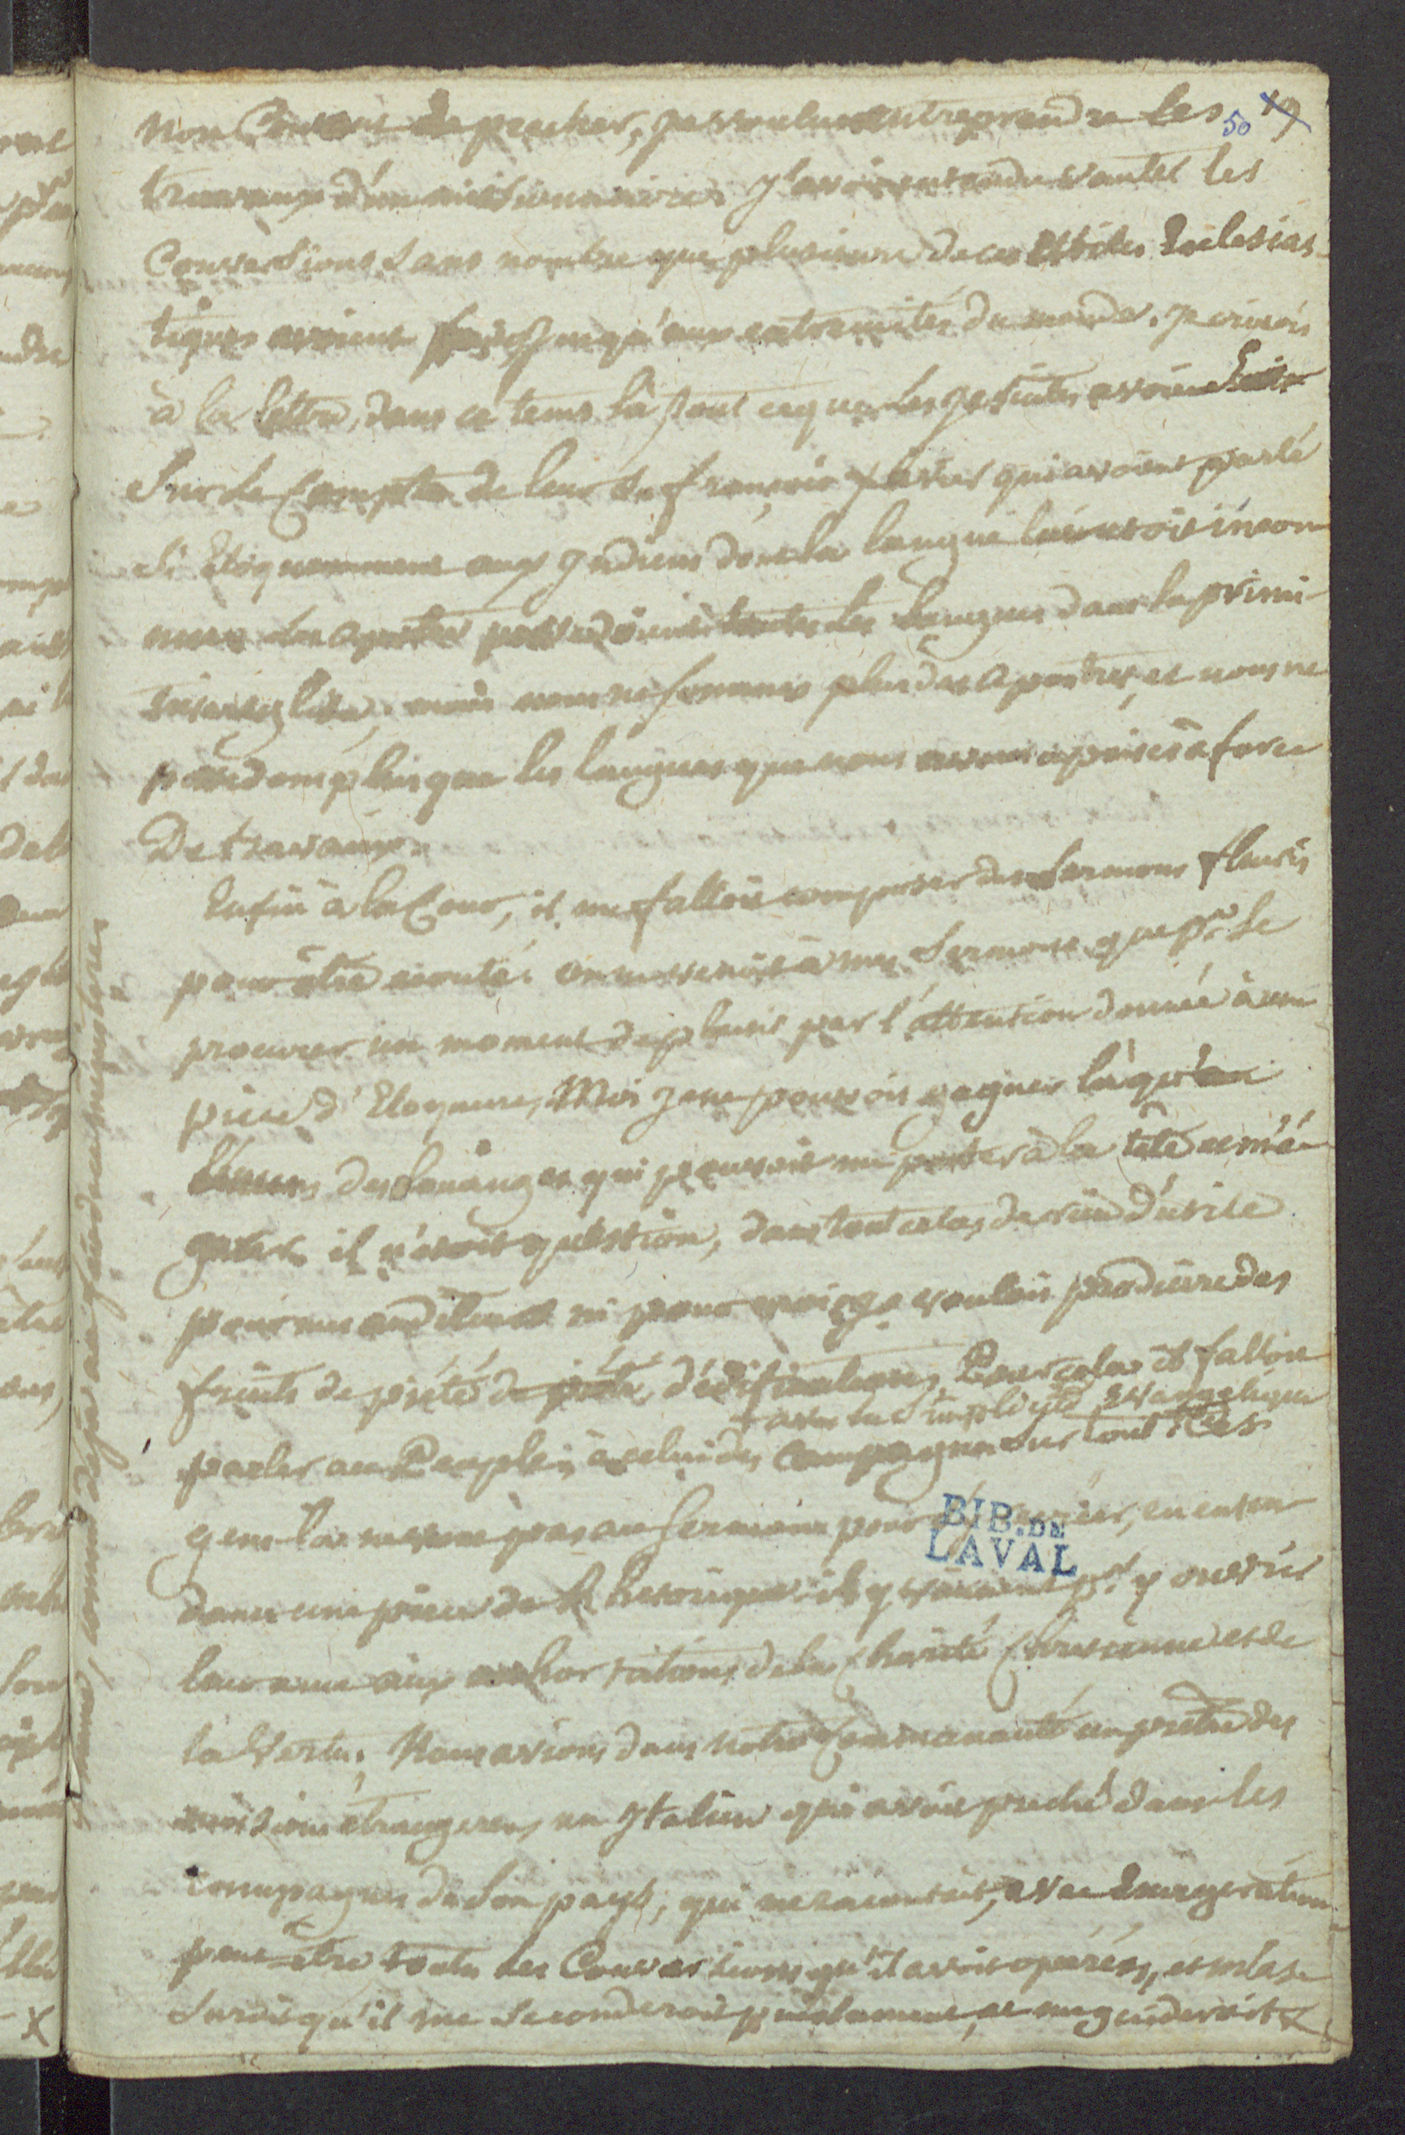 non Content de precher, je voulus entreprendre les 50 19
travaux d'un missionnaire. J'avois entendu vanter les
Conversions sans nombre que plusieurs de ces Ecclesias-
tiques avoient fait jusqu'aux extremités du monde. je croiois
à la lettre, dans ce tems là, tout ce que les Jesuites avoient
sur le Compte de leur St françois Xavier qui avoient parlé
si éloquemment aux Indiens dont la langue lui etoit incon-
nue. les apotres possedoient toutes les langues dans la primi-
tive eglise, mais nous ne sommes plus des apostres, et nous ne
possedons plus que les langues que nous avons aprises à force
De travaux.
Enfin à la Cour, il me falloit composer des sermons fleuris
pour être ecouté. on ne venoit à mes sermons que pr. se
procurer un moment de plaisir par l'attention donnée à une
piece d'Eloquence. Moi je ne pouvois gagner là qu'
l'encens des louanges qui pouvoit me porter à la tête et m'é-
garer. il n'etoit question, dans tout cela, de rien d'utile
pour mes auditeurs ni pour moi. je voulois produire des
fruits de pieté d'édification. Pour cela il falloit
avec la simplicité Evangelique
parler au Peuple, à celui des campagnes sur tout. Ces
gens là ne vont pas au sermon pour , en enten-
dant une piece de Rhetorique. ils y viennent pr. y ouvrir
leur ame aux exhortations de la Charité Chretienne et de
la Vertu. Nous avions dans notre Communauté un prêtre des
missions étrangeres, un Italien qui avoit preché dans les
campagnes de son pays, qui me racontoit, avec exageration
peut-être toutes les Conversions qu'il avoit opérées, et m'as-
suroit qu'il me seconderoit puissamment, et me guideroit X
BIB. DE
LAVAL